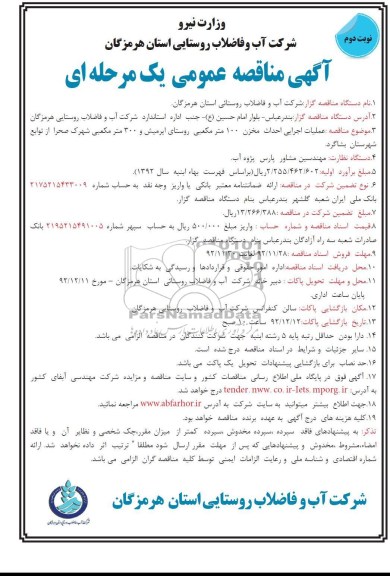 وزارت نیرو
نوبت دوم
شرکت آب وفاضلاب روستایی استان هرمزگان
آگهی مناقصه عمومی یک مرحله ای
۱.نام دستگاه مناقصه گزار:شرکت آب و فاضلاب روستائی استان هرمزگان.
۲.آدرس دستگاه مناقصه گزار:بندرعباس- بلوار امام حسین (ع)- جنب اداره استاندارد شرکت آب و فاضلاب روستایی هرمزگان
۳.موضوع مناقصه :عملیات اجرایی احداث مخزن ۱۰۰ متر مکعبی روستای ایرمیش و ۳۰۰ متر مکعبی شهرک صحرا از توابع
شهرستان بشاگرد.
۴.دستگاه نظارت: مهندسین مشاور پارس پژوه آب.
۵.مبلغ برآورد اولیه:۲/۲۵۵/۴۶۲/۶۰۲ریال(براساس فهرست بهاء ابنیه سال ۱۳۹۲).
۶. نوع تضمین شرکت در مناقصه: ارائه ضمانتنامه معتبر بانکی یا واریز وجه نقد به حساب شماره ۲۱۷۵۲۱۵۴۳۳۰۰۹
بانک ملی ایران شعبه گلشهر بندرعباس بنام دستگاه مناقصه گزار.
۷.مبلغ تضمین شرکت در مناقصه :۱۳/۲۶۶/۳۸۸ریال.
۸.قیمت اسناد مناقصه و شماره حساب : واریز مبلغ ۵۰۰/۰۰۰ ریال به حساب سپهر شماره ۲۱۹۵۲۱۵۴۹۱۰۰۵ بانک
صادرات شعبه سه راه آزادگان بندرعباس بنام دستگاه مناقصه گزار.
۹.مهلت فروش اسناد مناقصه :۹۲/۱۱/۲۸
۱۰.محل دریافت اسناد مناقصه:اداره امور حقوقی و قراردادها و رسیدگی به شکایات
۱۱.محل و مهلت تحویل پاکات : دبیر خانه شرکت آب و فاضلاب روستائی استان هرمزگان - مورخ ۹۲/۱۲/۱۱
پایان ساعت اداری.
۱۲.مکان بازگشایی پاکات: سالن کنفرانس شرکت آب و فاضلاب روستایی هرمزگان.
۱۳.تاریخ بازگشایی پاکات:۹۲/۱۲/۱۲ ساعت ۱۰ صبح
۱۴. دارا بودن حداقل رتبه پایه ۵ رشته ابنیه جهت شرکت کنندگان در مناقصه الزامی می باشد.
۱۵. سایر جزئیات و شرایط در اسناد مناقصه درج شده است.
۱۶.حد نصاب برای بازگشایی پیشنهادات تحویل یک پاکت می باشد.
۱۷. آگهی فوق در پایگاه ملی اطلاع رسانی مناقصات کشور و سایت مناقصه و مزایده شرکت مهندسی آبفای کشور
به آدرس: tender.nww.co.ir-Iets.mporg.ir درج خواهد شد.
۱۸.جهت اطلاع بیشتر میتوانید به سایت شرکت به آدرس www.abfarhor.ir مراجعه نمائید.
۱۹.کلیه هزینه های درج آگهی به عهده برنده مناقصه خواهد بود.
تذکر: به پیشنهادهای فاقد سپرده ،سپرده مخدوش،سپرده کمتر از میزان مقرر،چک شخصی و نظایر آن و یا فاقد
امضاء،مشروط ،مخدوش و پیشنهادهایی که پس از مهلت مقرر ارسال شود مطلقا" ترتیب اثر داده نخواهد شد. ارائه
شماره اقتصادی و شناسه ملی و رعایت الزامات ایمنی توسط کلیه مناقصه گران الزامی می باشد.
شرکت آب وفاضلاب روستایی استان هرمزگان
ParsNamadData